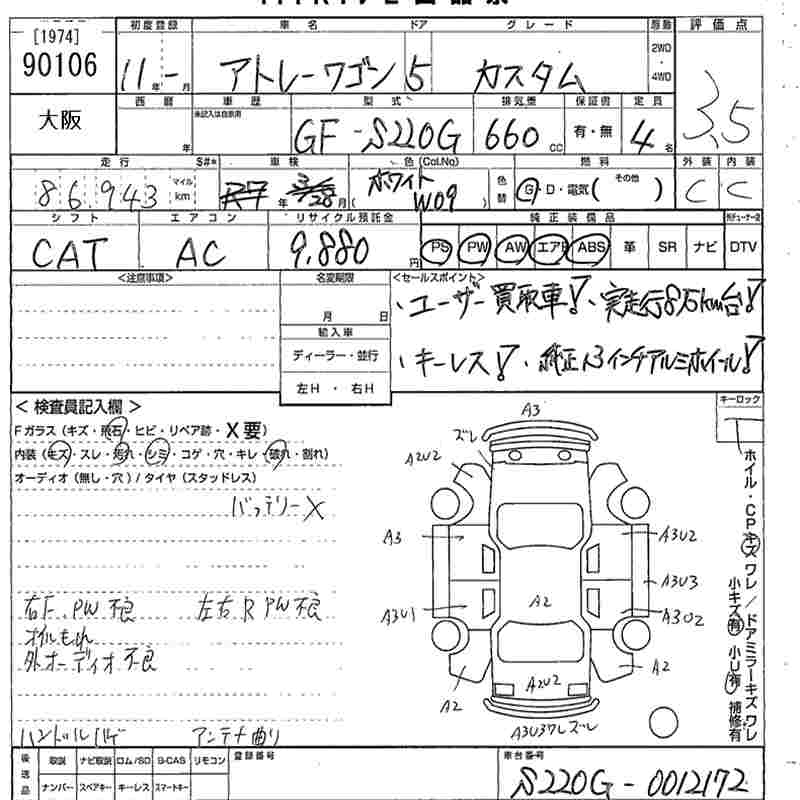 [1974]
90106
大阪
初度登録 車名 ドア グレード 原動 評価点
11年-月 アトレーワゴン 5 カスタム 2WD・4WD 3.5
西暦 車歴 型式 排気量 保証書 定員
年 未記入は自家用 GF-S220G 660cc 有・無 4名
走行 S#* 車検 色(Col.No) 燃料 外装 内装
86,943 マイル km 年 月 ホワイト W09 色替 G・D・電気( その他 ) C C
シフト エアコン リサイクル預託金 純正装備品
CAT AC 9,880円 PS PW AW エアB ABS 革 SR ナビ DTV
<注意事項> 名変期限 <セールスポイント>
月 日 、ユーザー買取車!、実走行8万km台!
輸入車
ディーラー・並行 、キーレス!、純正13インチアルミホイール!
左H・右H
<検査員記入欄> キーロック
Fガラス(キズ・飛石・ヒビ・リペア跡・X要)
内装(モズ・スレ・汚れ・シミ・コゲ・穴・キレ・破れ・割れ)
オーディオ(無し・穴)/タイヤ(スタッドレス)
バッテリーX
右F、PW不良 左右R PW不良
オイルもれ
外オーディオ不良
ハンドルハゲ アンテナ曲り
A3
ズレ
A2U2
A3 A3U2
A3U3
A3U1 A2 A3U2
A2 A2U2 A2
A3U3ワレズレ
ホイル・CPキズワレ/ドアミラーキズワレ
小キズ有 小U有 補修有
後送品 取説 ナビ取説 ロム/SD B-CAS リモコン 登録番号 車台番号
ナンバー スペアキー キーレス スマートキー S220G-0012172